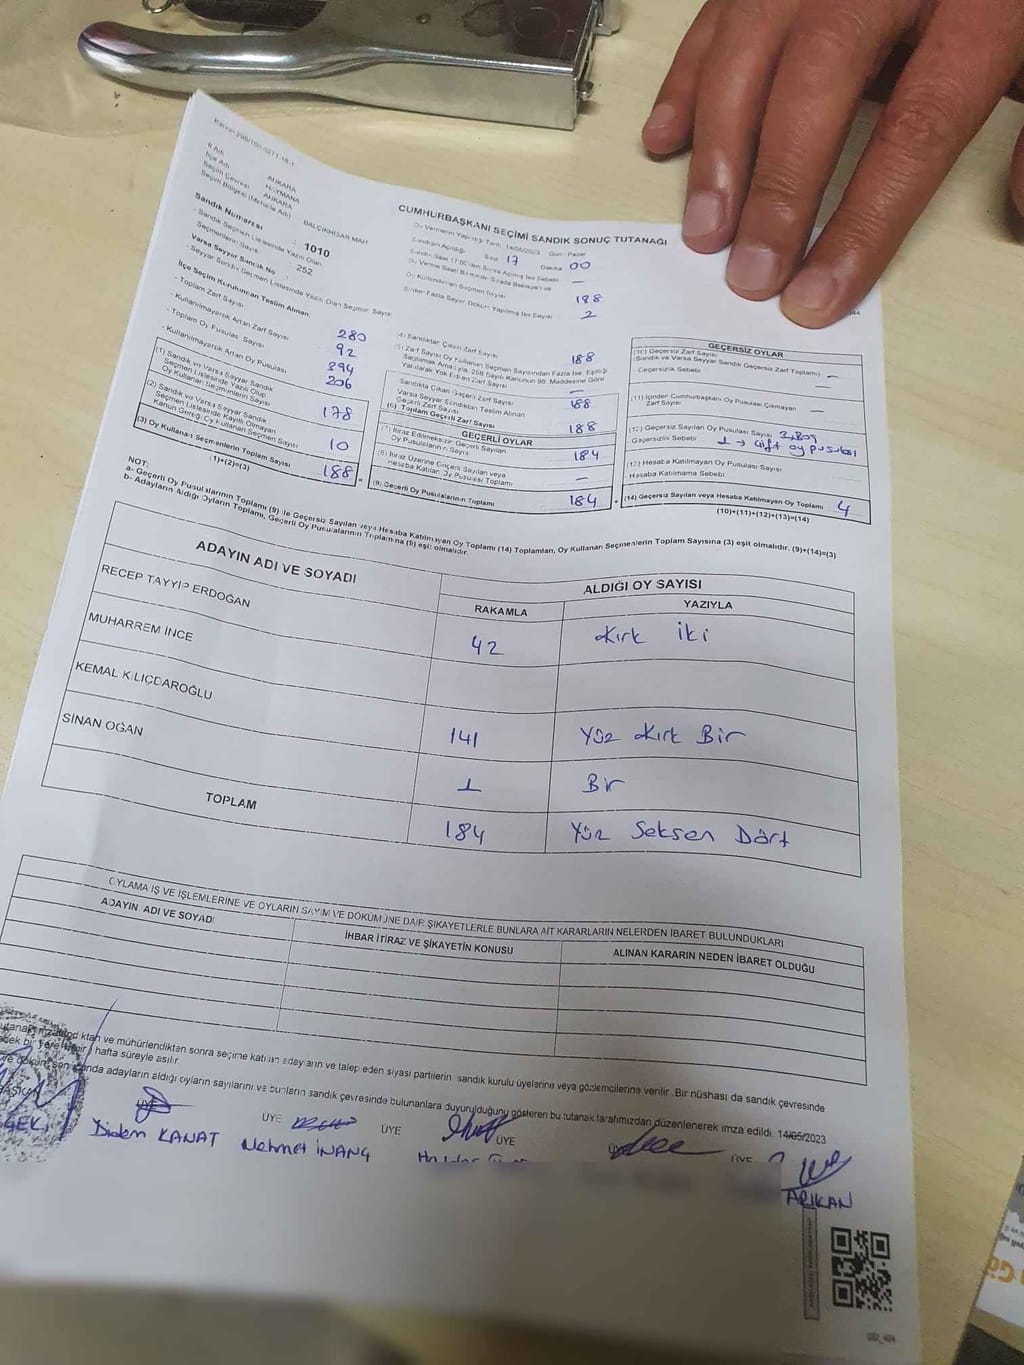 İl Adı : ANKARA
İlçe Adı : HAYMANA
Seçim Çevresi : ANKARA
Seçim Bölgesi (Mahalle Adı) : BALÇIKHİSAR MAH
Sandık Numarası : 1010
- Sandık Seçmen Listesinde Yazılı Olan
Seçmenlerin Sayısı : 252
Varsa Seyyar Sandık No
- Seyyar Sandık Seçmen Listesinde Yazılı Olan Seçmen Sayısı
İlçe Seçim Kurulundan Teslim Alınan:
- Toplam Zarf Sayısı 280
- Kullanılmayarak Artan Zarf Sayısı 92
- Toplam Oy Pusulası Sayısı 394
- Kullanılmayarak Artan Oy Pusulası 206
(1) Sandık ve Varsa Seyyar Sandık
Seçmen Listesinde Yazılı Olup
Oy Kullanan Seçmenlerin Sayısı 178
(2) Sandık ve Varsa Seyyar Sandık
Seçmen Listesinde Kayıtlı Olmayan
Kanun Gereği Oy Kullanan Seçmen Sayısı 10
(3) Oy Kullanan Seçmenlerin Toplam Sayısı 188 =
(1)+(2)=(3)
CUMHURBAŞKANI SEÇİMİ SANDIK SONUÇ TUTANAĞI
Oy Vermenin Yapıldığı Tarih: 14/05/2023 Gün : Pazar
Sandığın Açıldığı Saat 17 Dakika 00
Sandık Saat 17.00'den Sonra Açılmış İse Sebebi —
188
2
(4) Sandıktan Çıkan Zarf Sayısı 188
(5) Zarf Sayısı Oy Kullanan Seçmen Sayısından Fazla İse, Eşitliği
Sağlamak Amacıyla, 298 Sayılı Kanunun 98. Maddesine Göre
Yakılarak Yok Edilen Zarf Sayısı —
Sandıkta Çıkan Geçerli Zarf Sayısı 188
Varsa Seyyar Sandıktan Teslim Alınan
Geçerli Zarf Sayısı
(6) Toplam Geçerli Zarf Sayısı 188
GEÇERLİ OYLAR
(7) İtiraz Edilmeksizin Geçerli Sayılan
Oy Pusulalarının Sayısı 184
(8) İtiraz Üzerine Geçerli Sayılan veya
Hesaba Katılan Oy Pusulası Toplamı —
(9) Geçerli Oy Pusulalarının Toplamı 184 +
GEÇERSİZ OYLAR
(10) Geçersiz Zarf Sayısı
(Sandık ve Varsa Seyyar Sandık Geçersiz Zarf Toplamı) —
- Geçersizlik Sebebi —
(11) İçinden Cumhurbaşkanı Oy Pusulası Çıkmayan
Zarf Sayısı —
(12) Geçersiz Sayılan Oy Pusulası Sayısı
Geçersizlik Sebebi 1 → çift oy pusulası
(13) Hesaba Katılmayan Oy Pusulası Sayısı
- Hesaba Katılmama Sebebi
(14) Geçersiz Sayılan veya Hesaba Katılmayan Oy Toplamı 4
(10)+(11)+(12)+(13)=(14)
NOT:
a- Geçerli Oy Pusulalarının Toplamı (9) ile Geçersiz Sayılan veya Hesaba Katılmayan Oy Toplamı (14) Toplamları, Oy Kullanan Seçmenlerin Toplam Sayısına (3) eşit olmalıdır. (9)+(14)=(3)
b- Adayların Aldığı Oyların Toplamı, Geçerli Oy Pusulalarının Toplamına (9) eşit olmalıdır.
ADAYIN ADI VE SOYADI
ALDIĞI OY SAYISI
RAKAMLA YAZIYLA
RECEP TAYYİP ERDOĞAN 42 Kırk İki
MUHARREM İNCE
KEMAL KILIÇDAROĞLU 141 Yüz Kırk Bir
SİNAN OĞAN 1 Bir
TOPLAM 184 Yüz Seksen Dört
OYLAMA İŞ VE İŞLEMLERİNE VE OYLARIN SAYIM VE DÖKÜMÜNE DAİR ŞİKAYETLERLE BUNLARA AİT KARARLARIN NELERDEN İBARET BULUNDUKLARI
ADAYIN ADI VE SOYADI İHBAR İTİRAZ VE ŞİKAYETİN KONUSU ALINAN KARARIN NEDEN İBARET OLDUĞU
ve mühürlendikten sonra seçime katılan adayların ve talep eden siyasi partilerin sandık kurulu üyelerine veya gözlemcilerine verilir. Bir nüshası da sandık çevresinde
hafta süreyle asılır.
sonunda adayların aldığı oyların sayılarını ve bunların sandık çevresinde bulunanlara duyurulduğunu gösteren bu tutanak tarafımızdan düzenlenerek imza edildi. 14/05/2023
ÜYE ÜYE ÜYE ÜYE ÜYE ÜYE
Didem KANAT Mehmet İNANÇ
ARIKAN